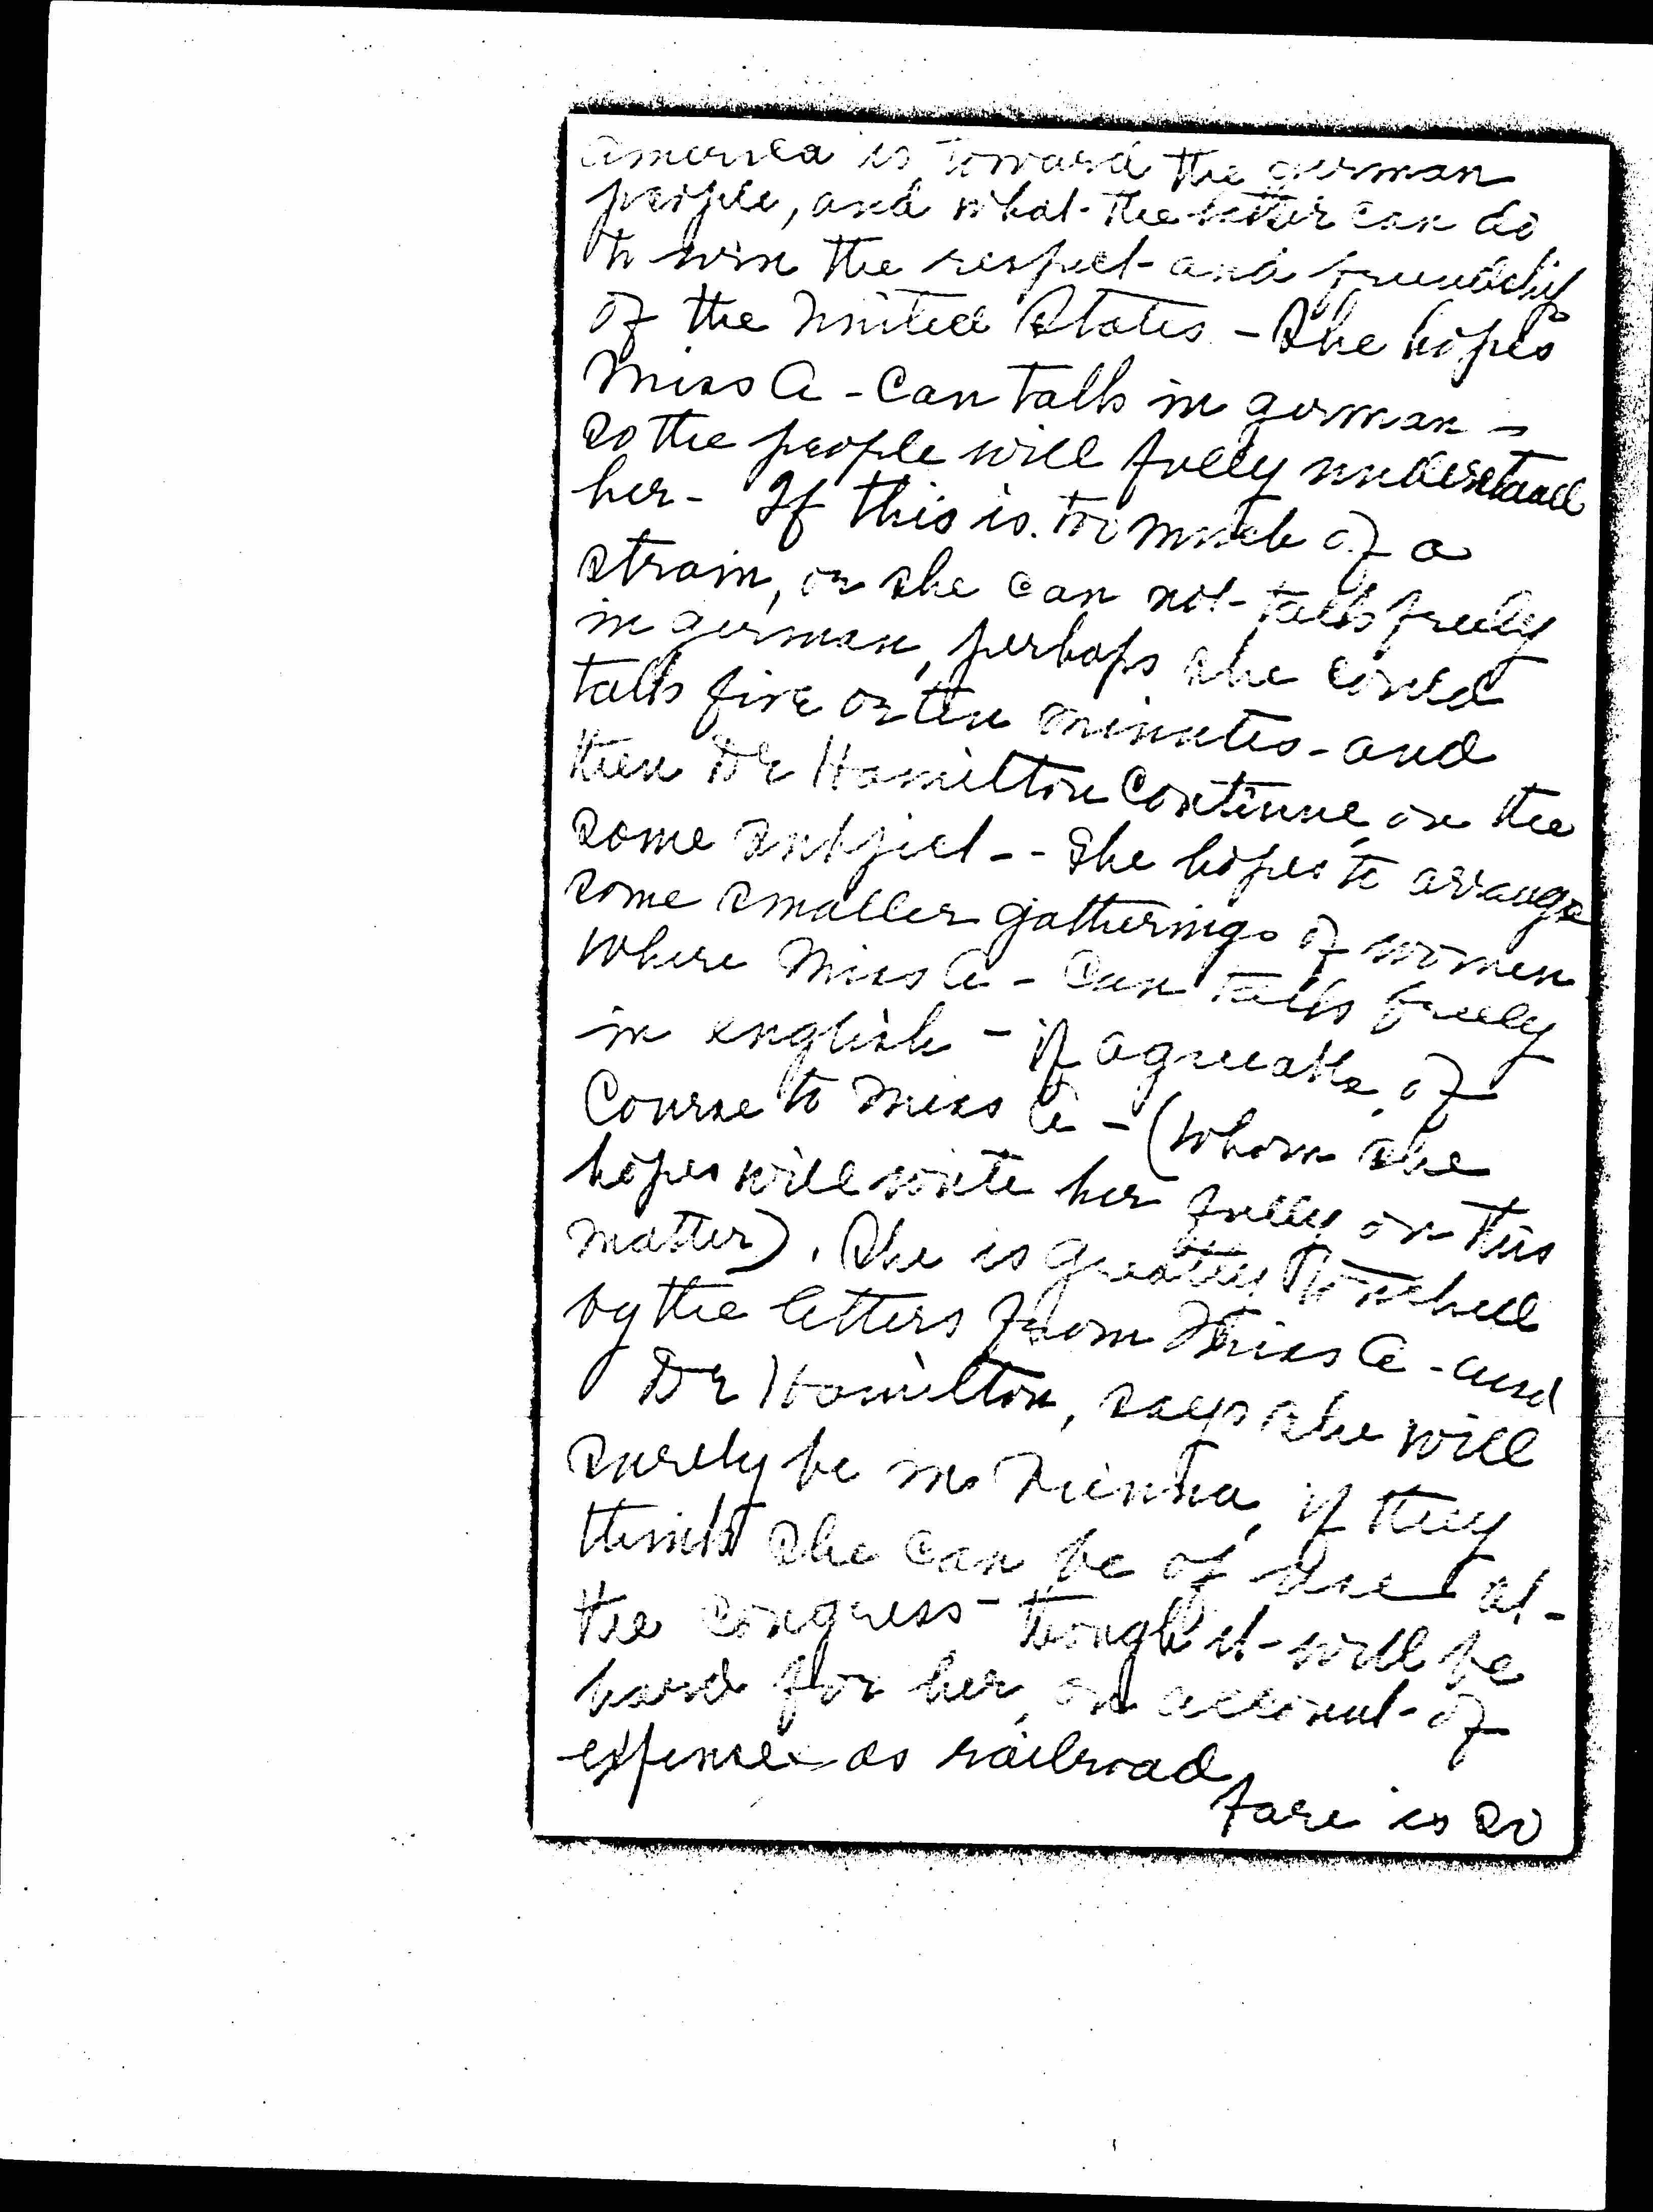 america is toward the german
people, and what the latter can do
to win the respect and friendship
of the United States - She hopes
Miss A - can talk in german -
so the people will fully understand
her - If this is too much of a
strain, or she can not talk freely
in german, perhaps she could
talk five or ten minutes - and
then Dr Hamilton continue, on the
same subject - - She hopes to arrange
some smaller gatherings of women
where Miss A - can talk freely
in english - if agreeable, of
course to Miss A - (whom she
hopes will write her fully on this
matter). She is greatly touched
by the letters from Miss A - and
Dr Hamilton, says she will
surely be in Vienna, if they
think she can be of use at
the congress - though it will be
hard for her, on account of
expense as railroad
fare is so